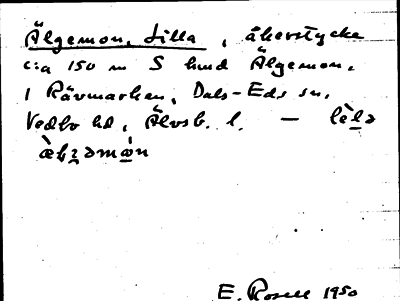 Älgemon, Lilla, åkerstycke
c:a 150 m S hmd Älgemon.
i Rävmarken, Dals-Eds sn,
Vedbo hd, Älvsb. l. – lèla
E. Rosell 1950